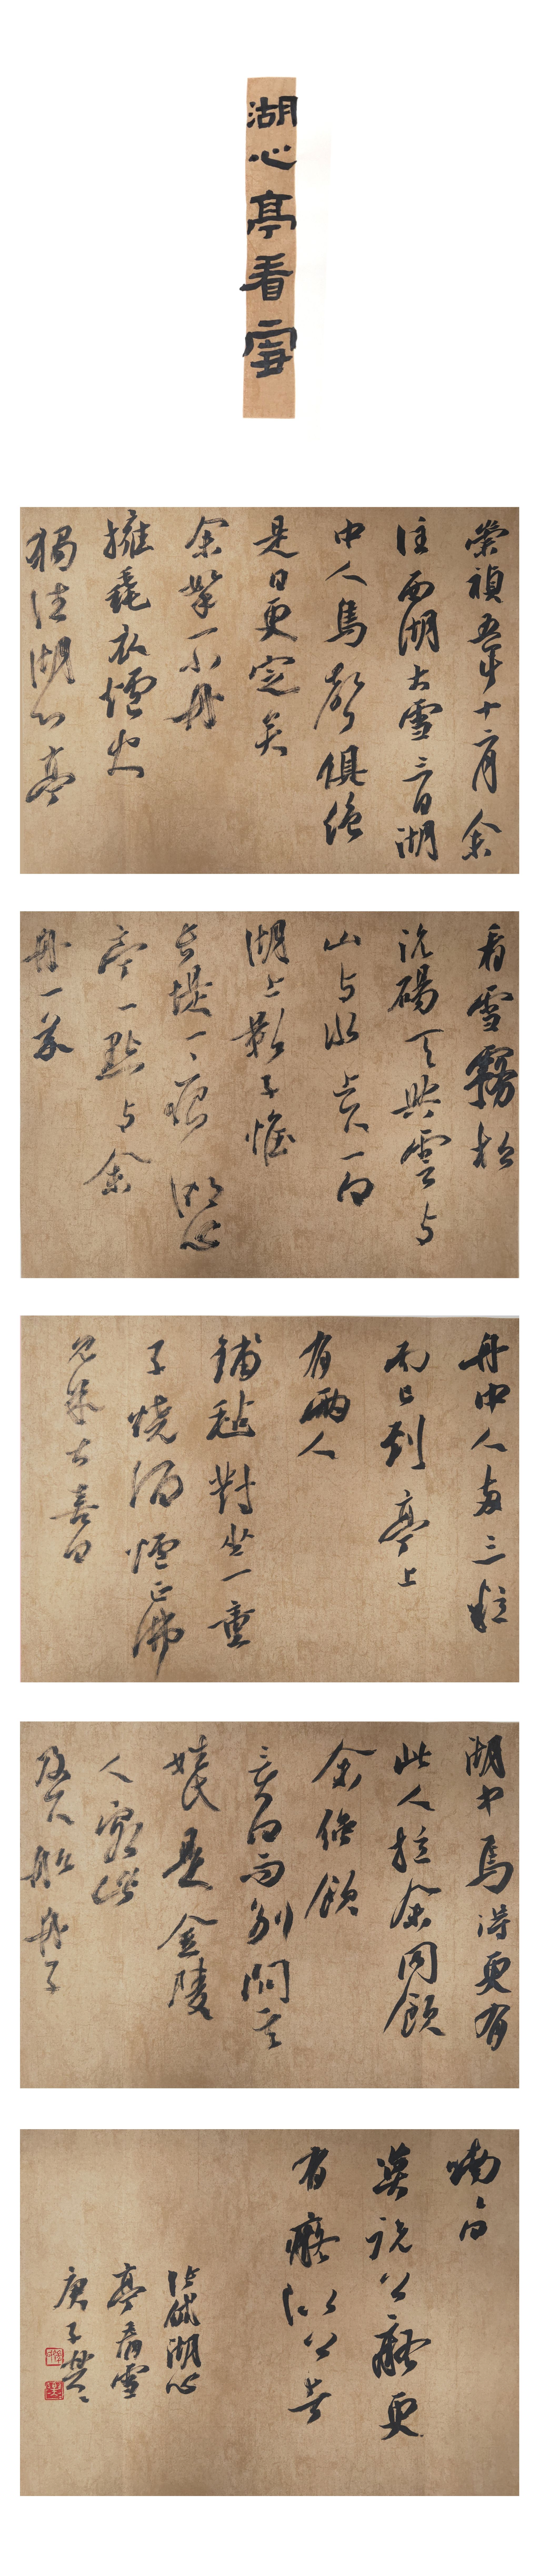 湖心亭看雪
崇禎五年十二月余
住西湖大雪三日湖
中人鳥聲俱絕
是日更定矣
余拏一小舟
擁毳衣爐火
獨往湖心亭
看雪霧松
沆碭天與雲与
山与水上下一白
湖上影子惟
長堤一痕湖心
亭一點与余
舟一芥
舟中人兩三粒
而已到亭上
有兩人
鋪氈對坐一童
子燒酒爐正沸
見余大喜曰
湖中焉得更有
此人拉余同飲
余強飲
三白而別問其
姓氏是金陵
人客此
及下船舟子
喃々曰
莫說公癡更
有癡似公者
張岱湖心
亭看雪
庚子